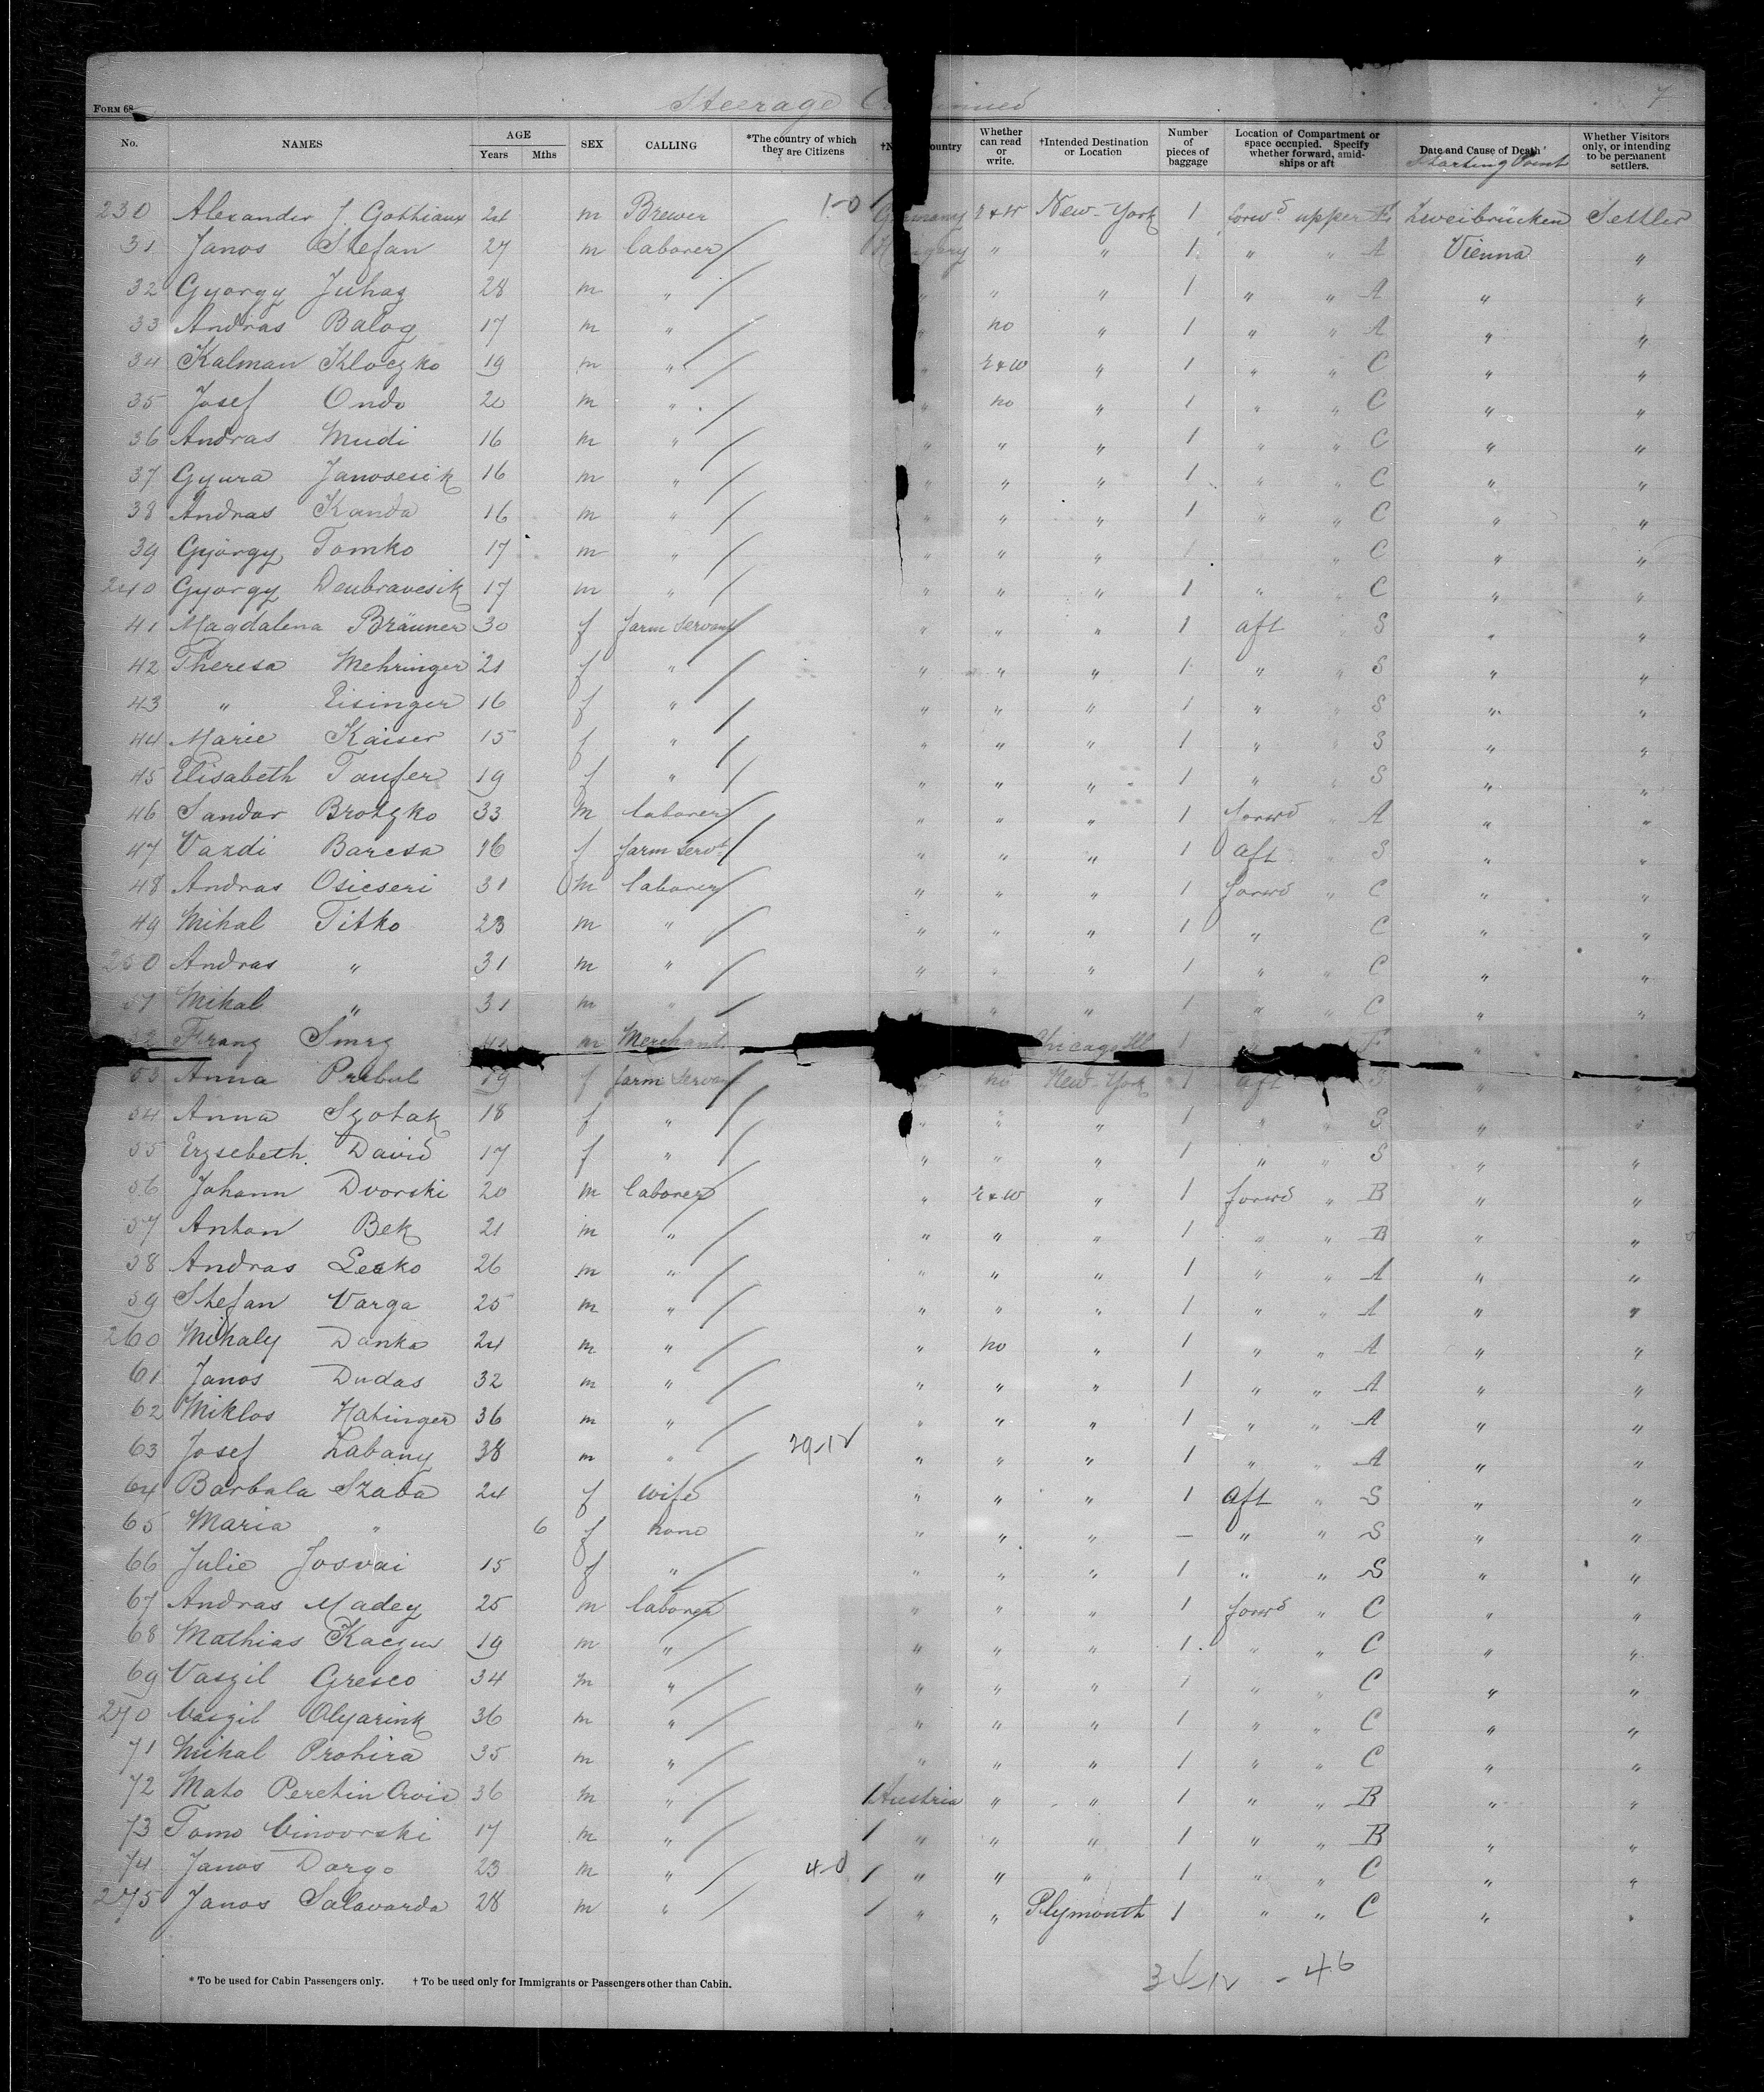 Steerage
7
FORM 68
No. NAMES AGE Years Mths SEX CALLING *The country of which they are Citizens Country Whether can read or write. †Intended Destination or Location Number of pieces of baggage Location of Compartment or space occupied. Specify whether forward, amidships or aft Date and Cause of Death Starting Point Whether Visitors only, or intending to be permanent settlers.
230 Alexander J. Gothiaux 24 m Brewer 1-0 Germany r & w New-York 1 forwd upper Zweibrücken Settler
31 Janos Stefan 27 m laborer Hungary " " 1 " " A Vienna "
32 Gyorgy Juhaz 28 m " " " " 1 " " A " "
33 Andras Balog 17 m " " no " 1 " " A " "
34 Kalman Kloczko 19 m " " r & w " 1 " " C " "
35 Josef Ondo 20 m " " no " 1 " " C " "
36 Andras Mudi 16 m " " " " 1 " " C " "
37 Gyura Janosesik 16 m " " " " 1 " " C " "
38 Andras Kanda 16 m " " " " 1 " " C " "
39 György Tomko 17 m " " " " 1 " C " "
240 Gyorgy Deubravesik 17 m " " " " 1 " C " "
41 Magdalena Bräuner 30 f farm servant " " " 1 aft " S " "
42 Theresa Mehringer 21 f " " " " 1 " " S " "
43 " Eisinger 16 f " " " " 1 " " S " "
44 Marie Kaiser 15 f " " " " 1 " " S " "
45 Elisabeth Taufer 19 f " " " " 1 " " S " "
46 Sandor Brotzko 33 m laborer " " " 1 forwd " A " "
47 Vazdi Baresa 16 f farm servt " " " 1 aft " S " "
48 Andras Osicseri 31 m laborer " " " 1 forwd " C " "
49 Mihal Titko 23 m " " " " 1 " C " "
250 Andras " 31 m " " " " 1 " " C " "
51 Mihal " 31 m " " " 1 " " C " "
52 Franz Smrz m Merchant Chicago Ill 1 F "
53 Anna Pribul 19 f farm servant no New-York 1 aft S "
54 Anna Szotak 18 f " " " " 1 " " S " "
55 Erzsebeth David 17 f " " " " 1 " " S " "
56 Johann Dvorski 20 m laborer " r & w " 1 forwd " B " "
57 Anton Bek 21 m " " " " 1 " " B " "
58 Andras Lesko 26 m " " " " 1 " " A " "
59 Stefan Varga 25 m " " " " 1 " " A " "
260 Mihaly Danko 24 m " " no " 1 " " A " "
61 Janos Dudas 32 m " " " " 1 " " A " "
62 Miklos Hatinger 36 m " " " " 1 " " A " "
63 Josef Labany 38 m " 29-12 " " " 1 " " A " "
64 Barbala Szaba 24 f wife " " " 1 aft " S " "
65 Maria " 6 f none " " " — " " S " "
66 Julie Josvai 15 f " " " " 1 " " S " "
67 Andras Madey 25 m laborer " " " 1 forwd " C " "
68 Mathias Kaczur 19 m " " " " 1 " " C " "
69 Vaszil Gresco 34 m " " " " 1 " " C " "
270 Vaszil Olyarink 36 m " " " " 1 " " C " "
71 Mihal Prohira 35 m " " " " 1 " " C " "
72 Mato Peretin Crvic 36 m " 1 Austria " " 1 " " B " "
73 Tomo Vinovrski 17 m " 1 " " " 1 " " B " "
74 Janos Dargo 23 m " 4-0 1 " " " 1 " " C " "
275 Janos Salavarda 28 m " 1 " " Plymouth 1 " " C " "
34-12 - 46
* To be used for Cabin Passengers only. † To be used only for Immigrants or Passengers other than Cabin.